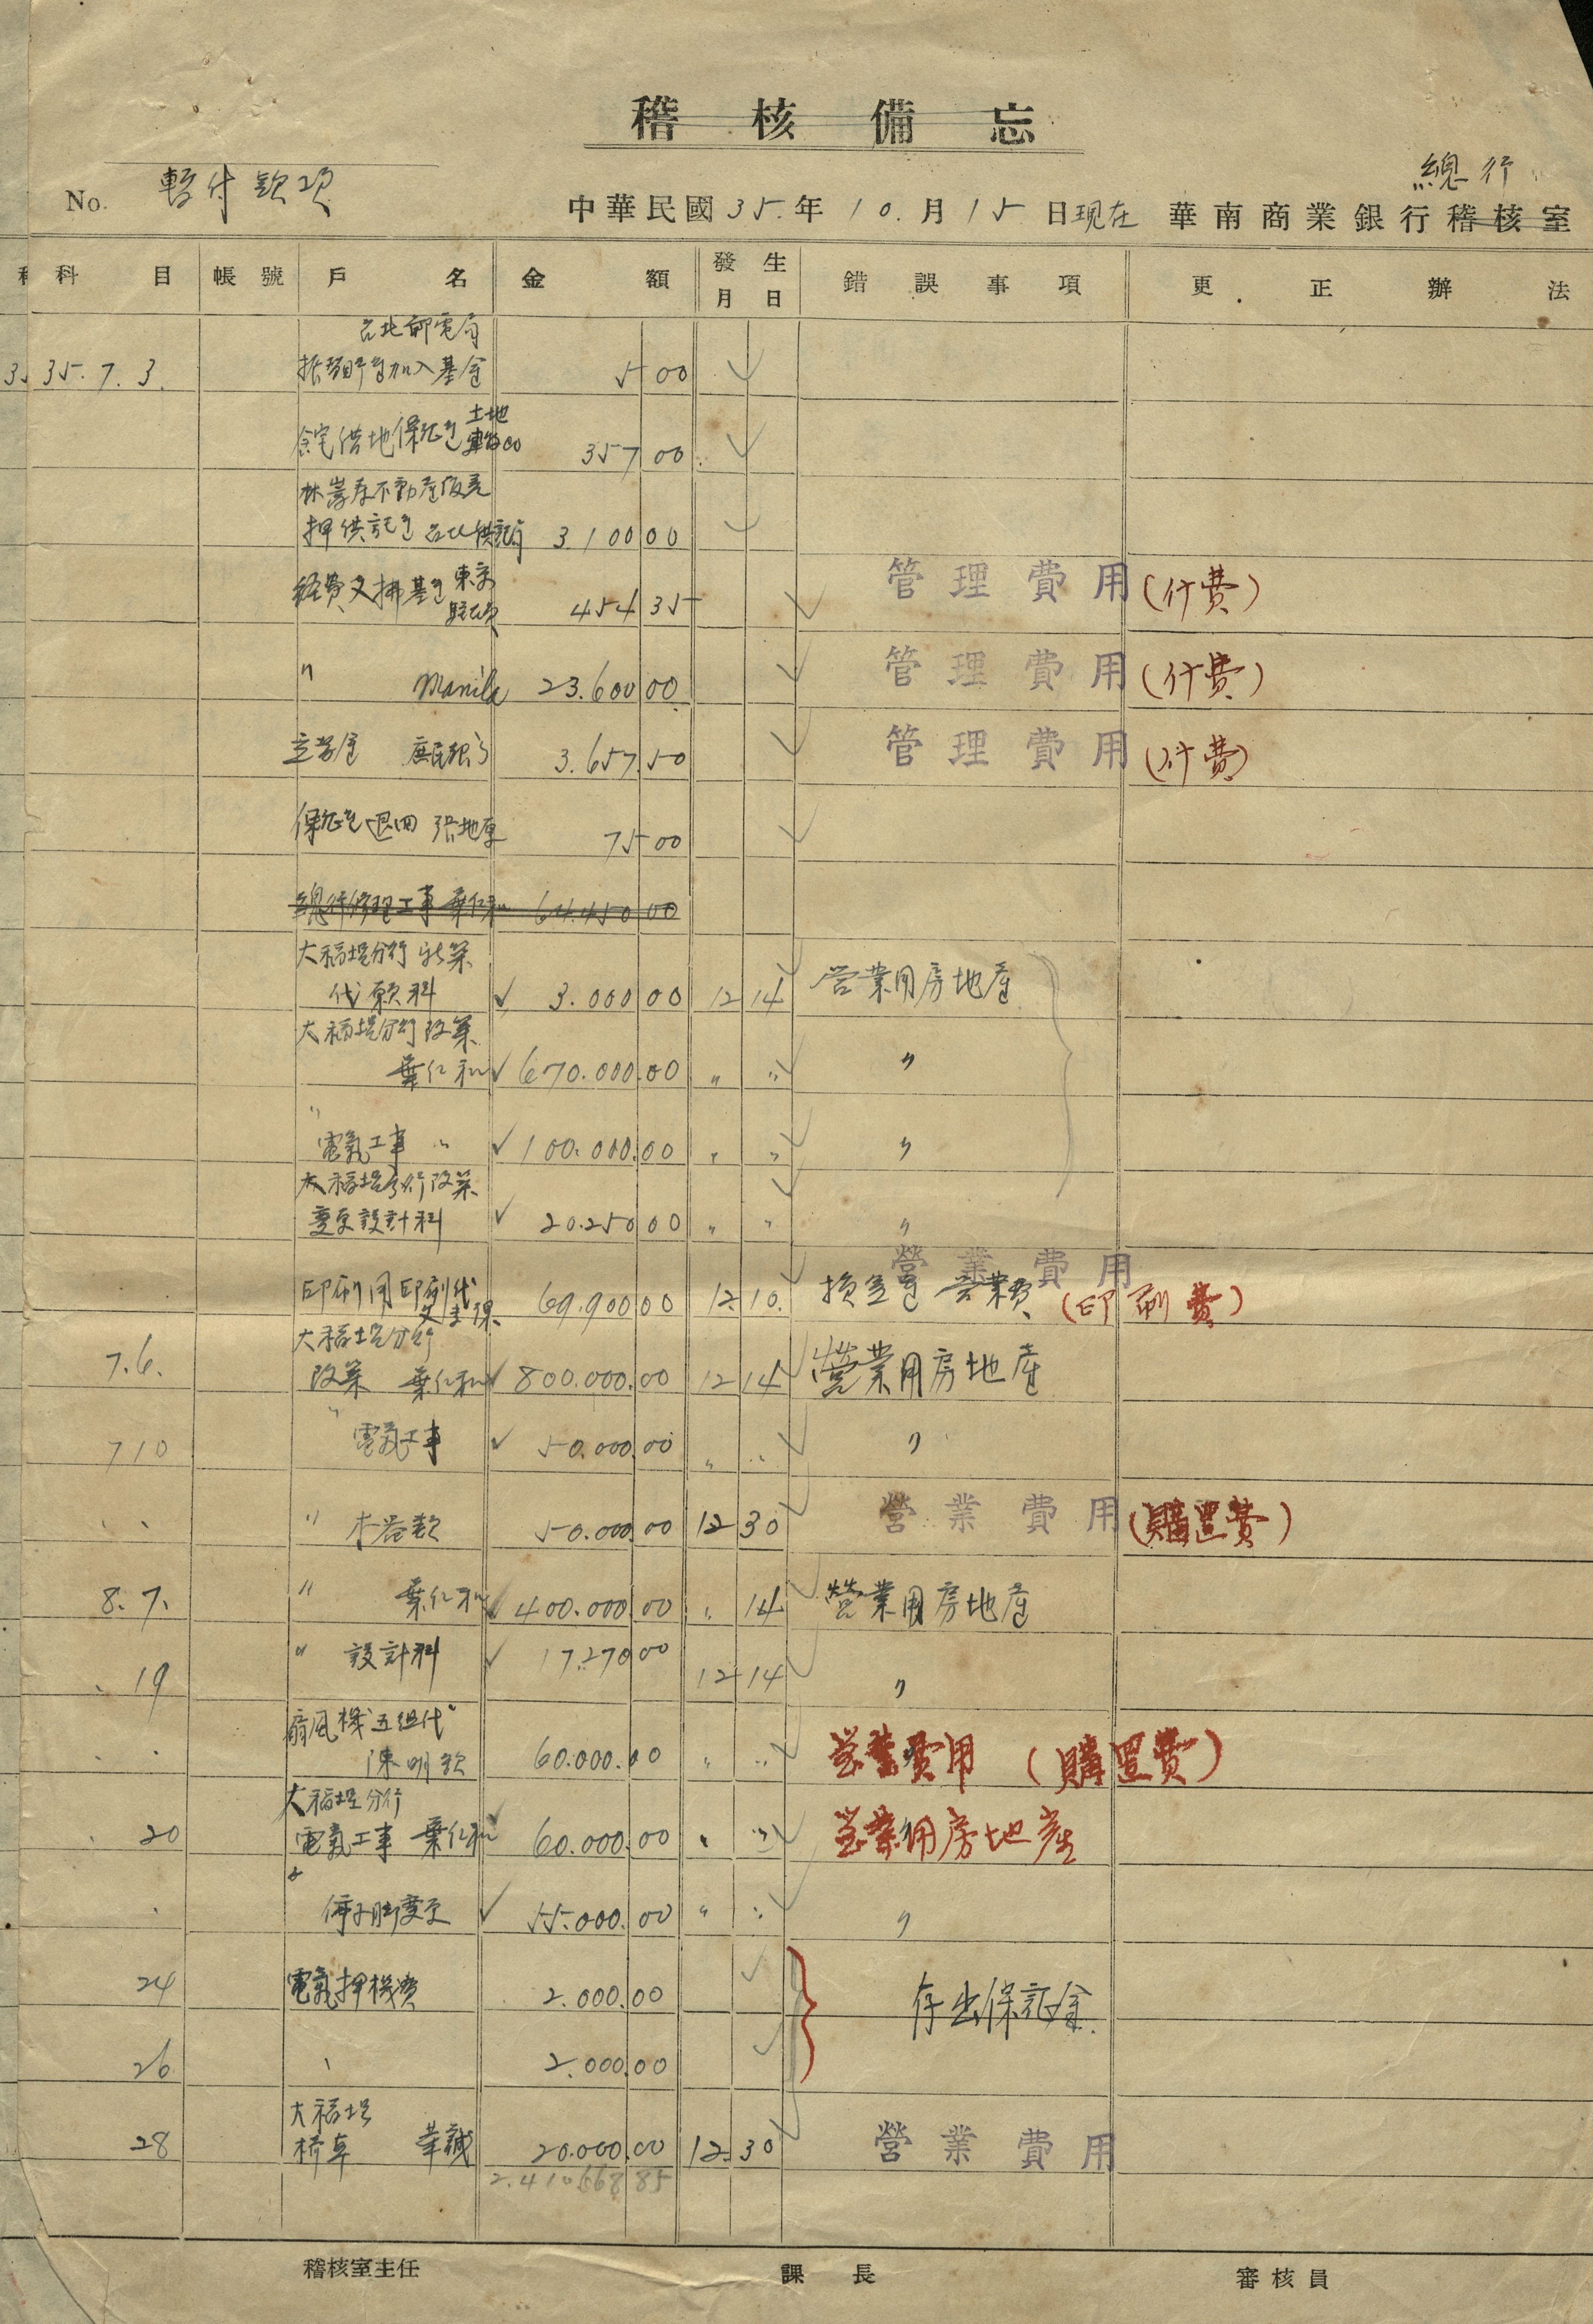 稽核備忘
總行
No. 暫付款項
中華民國35.年10.月15日現在 華南商業銀行稽核室
科目 帳號 戶名 金額 發生月日 錯誤事項 更正辦法
台北郵電局
35.7.3. 加入基金 5 00
土地
保証金 357 00
林嵩寿不動產仮差
押供託金 3.100 00
経費支拂基金 東京 454 35 管理費用(付費)
〃 Manila 23.600 00 管理費用(付費)
庶民銀行 3.657 50 管理費用(付費)
保証金退回 75 00
總行修理工事 葉仁和 64.450 00
大稻埕分行新築
代願料 3.000 00 12 14 營業用房地產
大稻埕分行改築
葉仁和 670.000.00 〃 〃 〃
〃
電氣工事 〃 100.000.00 〃 〃 〃
大稻埕分行改築
變更設計料 20.250 00 〃 〃 〃
營業費用
印刷用印刷代 69.900 00 12.10. 損益金 營業費 (印刷費)
大稻埕分行
7.6. 改築 葉仁和 800.000.00 12 14 營業用房地產
〃
7 10 電氣工事 50.000.00 〃 〃 〃
〃 木器款 50.000.00 12 30 營業費用(購置費)
8.7. 〃 葉仁和 400.000.00 〃 14 營業用房地產
19 〃 設計料 17.270 00 12 14 〃
扇風機五組代
陳明 60.000.00 〃 〃 營業費用 (購置費)
大稻埕分行
20 電氣工事 葉仁和 60.000.00 〃 〃 營業用房地産
〃
停子脚變更 55.000.00 〃 〃 〃
24 電氣押機費 2.000.00 存出保証金.
26 〃 2.000.00
大稻埕
28 華誠 20.000.00 12.30 營業費用
2.410668 85
稽核室主任 課長 審核員